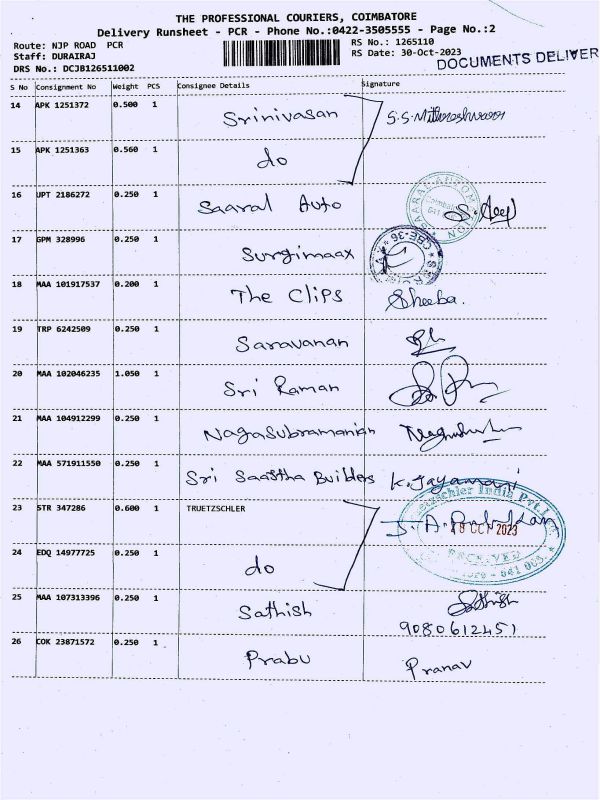 THE PROFESSIONAL COURIERS, COIMBATORE
Delivery Runsheet - PCR - Phone No.:0422-3505555 - Page No.:2
Route: NJP ROAD PCR
RS No.: 1265110
Staff: DURAIRAJ
RS Date: 30-Oct-2023
DRS No.: DCJB126511002
DOCUMENTS DELIVER
S No Consignment No Weight PCS Consignee Details Signature
14 APK 1251372 0.500 1 Srinivasan S.S.Mithreshwaran
15 APK 1251363 0.560 1 do
16 UPT 2186272 0.250 1 Saaral Auto
17 GPM 328996 0.250 1 Surgimaax
18 MAA 101917537 0.200 1 The Clips Sheeba.
19 TRP 6242509 0.250 1 Saravanan
20 MAA 102046235 1.050 1 Sri Raman
21 MAA 104912299 0.250 1 NagaSubramanian
22 MAA 571911550 0.250 1 Sri Saastha Builders K.Jayamani
23 STR 347286 0.600 1 TRUETZSCHLER
OCT 2023
RECEIVED
24 EDQ 14977725 0.250 1 do
25 MAA 107313396 0.250 1 Sathish Sathish
9080612451
26 COK 23871572 0.250 1 Prabu Pranav